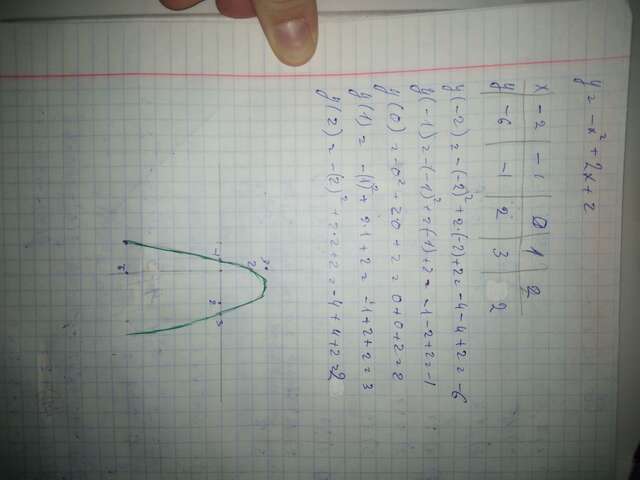 y = -x² + 2x + 2
x -2 -1 0 1 2
y -6 -1 2 3 2
y(-2) = -(-2)² + 2·(-2) + 2 = -4 - 4 + 2 = -6
y(-1) = -(-1)² + 2(-1) + 2 = -1 - 2 + 2 = -1
y(0) = -0² + 2·0 + 2 = 0 + 0 + 2 = 2
y(1) = -(1)² + 2·1 + 2 = -1 + 2 + 2 = 3
y(2) = -(2)² + 2·2 + 2 = -4 + 4 + 2 = 2
2
-1 2 3